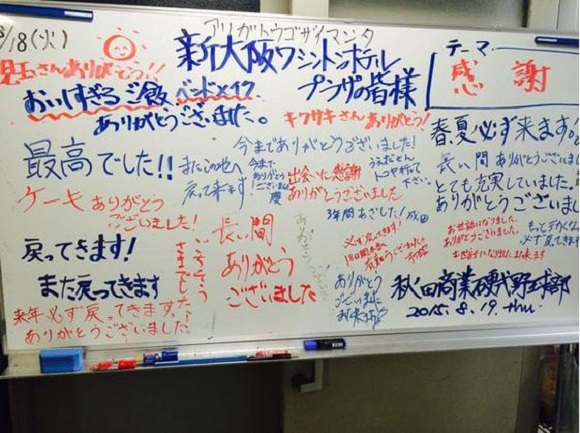 /18(火)
アリガトウゴザイマシタ
新大阪ワシントンホテル
プラザの皆様
テーマ
感 謝
児玉さんありがとう!!
おいしすぎるご飯
ありがとうございました。
キワサキさんありがとう!
春夏必ず来ます。
最高でした!!
またこの地へ
戻って来ます
今までありがとうございました!
今まで
ありがとう
ございました
慶
出会いに感謝
ありがとうございました
長い間 ありがとうございました
とても充実していました。
ありがとうございました
ケーキ ありがとう
ございました!
3年間あざした! 成田
お世話になりました。
ありがとうございました。
戻ってきます!
また戻ってきます
長い間
ありがとう
ございました
来年必ず戻ってきます
ありがとうございました
ありがとう
ございました
秋田商業硬式野球部
2015.8.19. thu.